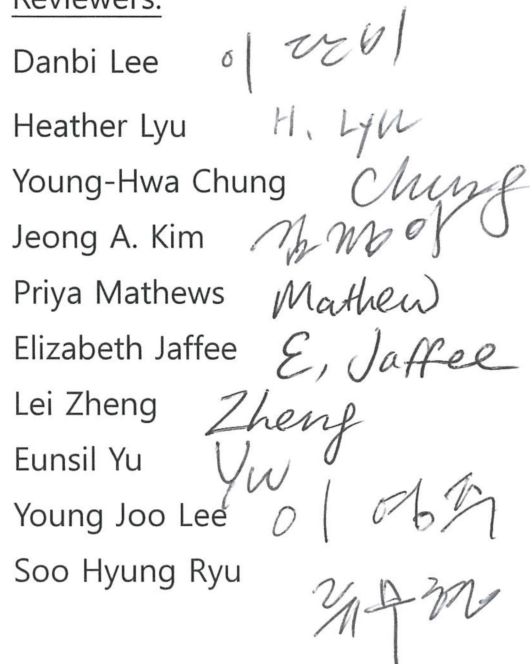 Reviewers:
Danbi Lee 이 단비
Heather Lyu H. Lyu
Young-Hwa Chung Chung
Jeong A. Kim 김 정아
Priya Mathews Mathew
Elizabeth Jaffee E, Jaffee
Lei Zheng Zheng
Eunsil Yu Yu
Young Joo Lee 이 영주
Soo Hyung Ryu 류수형